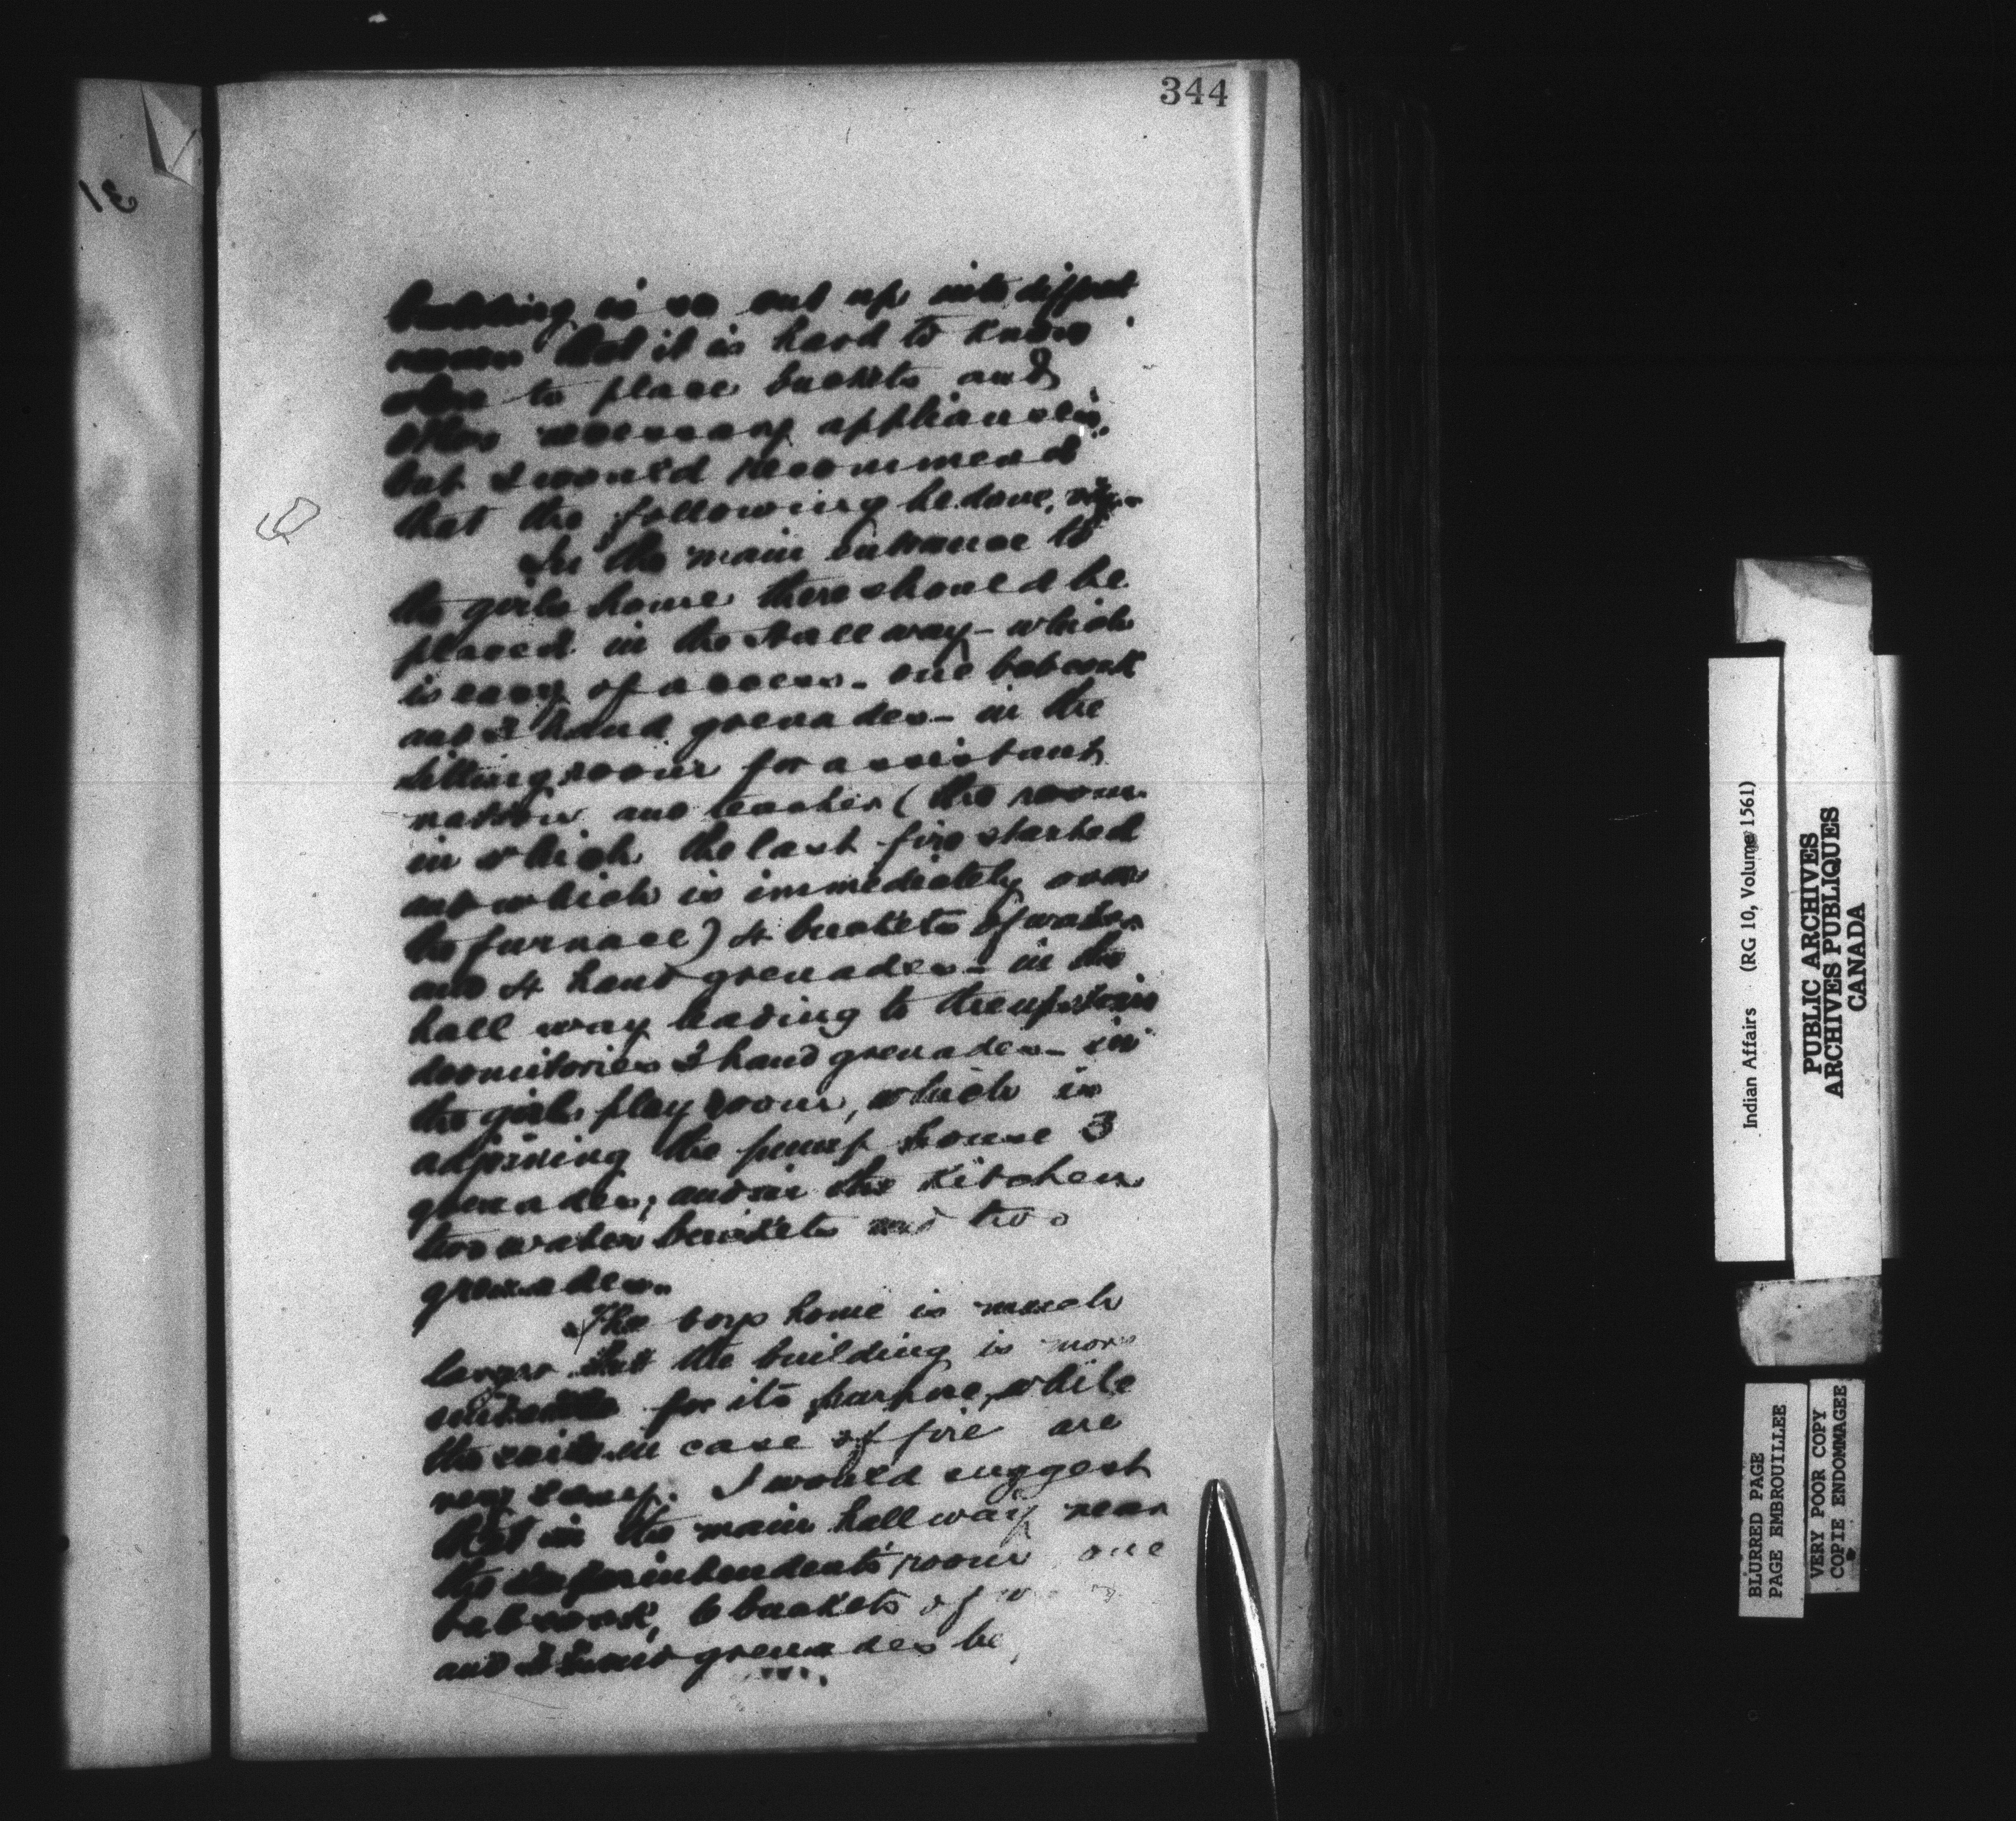 344
building is so cut up into diffrent
rooms that it is hard to know
where to place buckets and
other necessary appliances,
but I would recommend
that the following be done, viz-
In the main entrance to
the girls home there should be
placed in the Hall way - which
is easy of access - one babcock
and hand grenades - in the
sitting room for assistant
matron and teacher (the room
in which the last fire started
and which is immediately over
the furnace) 4 buckets of water
and 4 hand grenades - in the
hall way leading to the upstairs
dormitories 3 hand grenades - in
the girls play room, which is
adjoining the pump house 3
grenades; and in the kitchen
two water buckets and two
grenades.
The boys home is much
larger but the building is more
suitable for its purpose, while
the exits in case of fire are
very easy. I would suggest
that in the main hall way near
the superintendents room one
babcock, 6 buckets of
and hand grenades be
Indian Affairs (RG 10, Volume 1561)
PUBLIC ARCHIVES
ARCHIVES PUBLIQUES
CANADA
BLURRED PAGE
PAGE EMBROUILLEE
VERY POOR COPY
COPIE ENDOMMAGEE